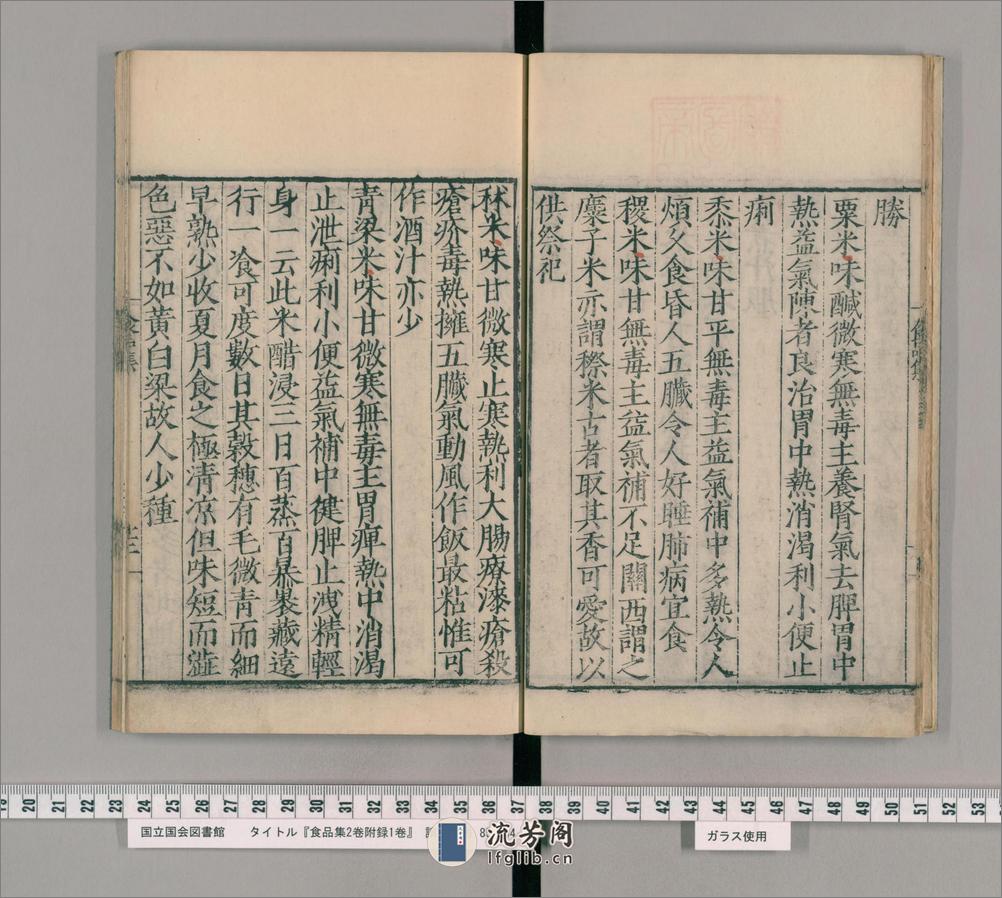 勝
粟米味鹹微寒無毒主養腎氣去脾胃中
熱益氣陳者良治胃中熱消渴利小便止
痢
黍米味甘平無毒主益氣補中多熱令人
煩久食昏人五臟令人好睡肺病宜食
稷米味甘無毒主益氣補不足關西謂之
麋子米亦謂穄米古者取其香可愛故以
供祭祀
秫米味甘微寒止寒熱利大腸療漆瘡殺
瘡疥毒熱擁五臟氣動風作飯最粘惟可
作酒汁亦少
青梁米味甘微寒無毒主胃痺熱中消渴
止泄痢利小便益氣補中健脾止洩精輕
身一云此米醋浸三日百蒸百暴裹藏遠
行一飡可度數日其穀穗有毛微青而細
早熟少收夏月食之極清凉但味短而澁
色惡不如黃白梁故人少種
国立国会図書館 タイトル『食品集2卷附録1卷』
ガラス使用
流芳阁
lfglib.cn
19 20 21 22 23 24 25 26 27 28 29 30 31 32 33 34 35 36 37 38 39 40 41 42 43 44 45 46 47 48 49 50 51 52 53